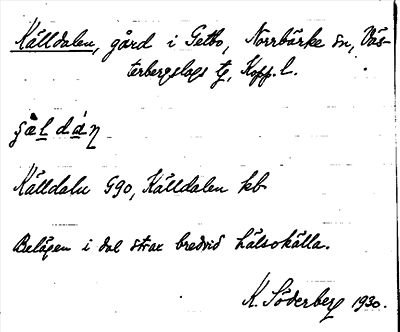 Källdalen, gård i Getbo, Norrbärke sn, Väs-
terbergslags tg, Kopp. l.
Källdaln G90, Källdalen kb
Belägen i dal strax bredvid hälsokälla.
K. Söderberg 1930.